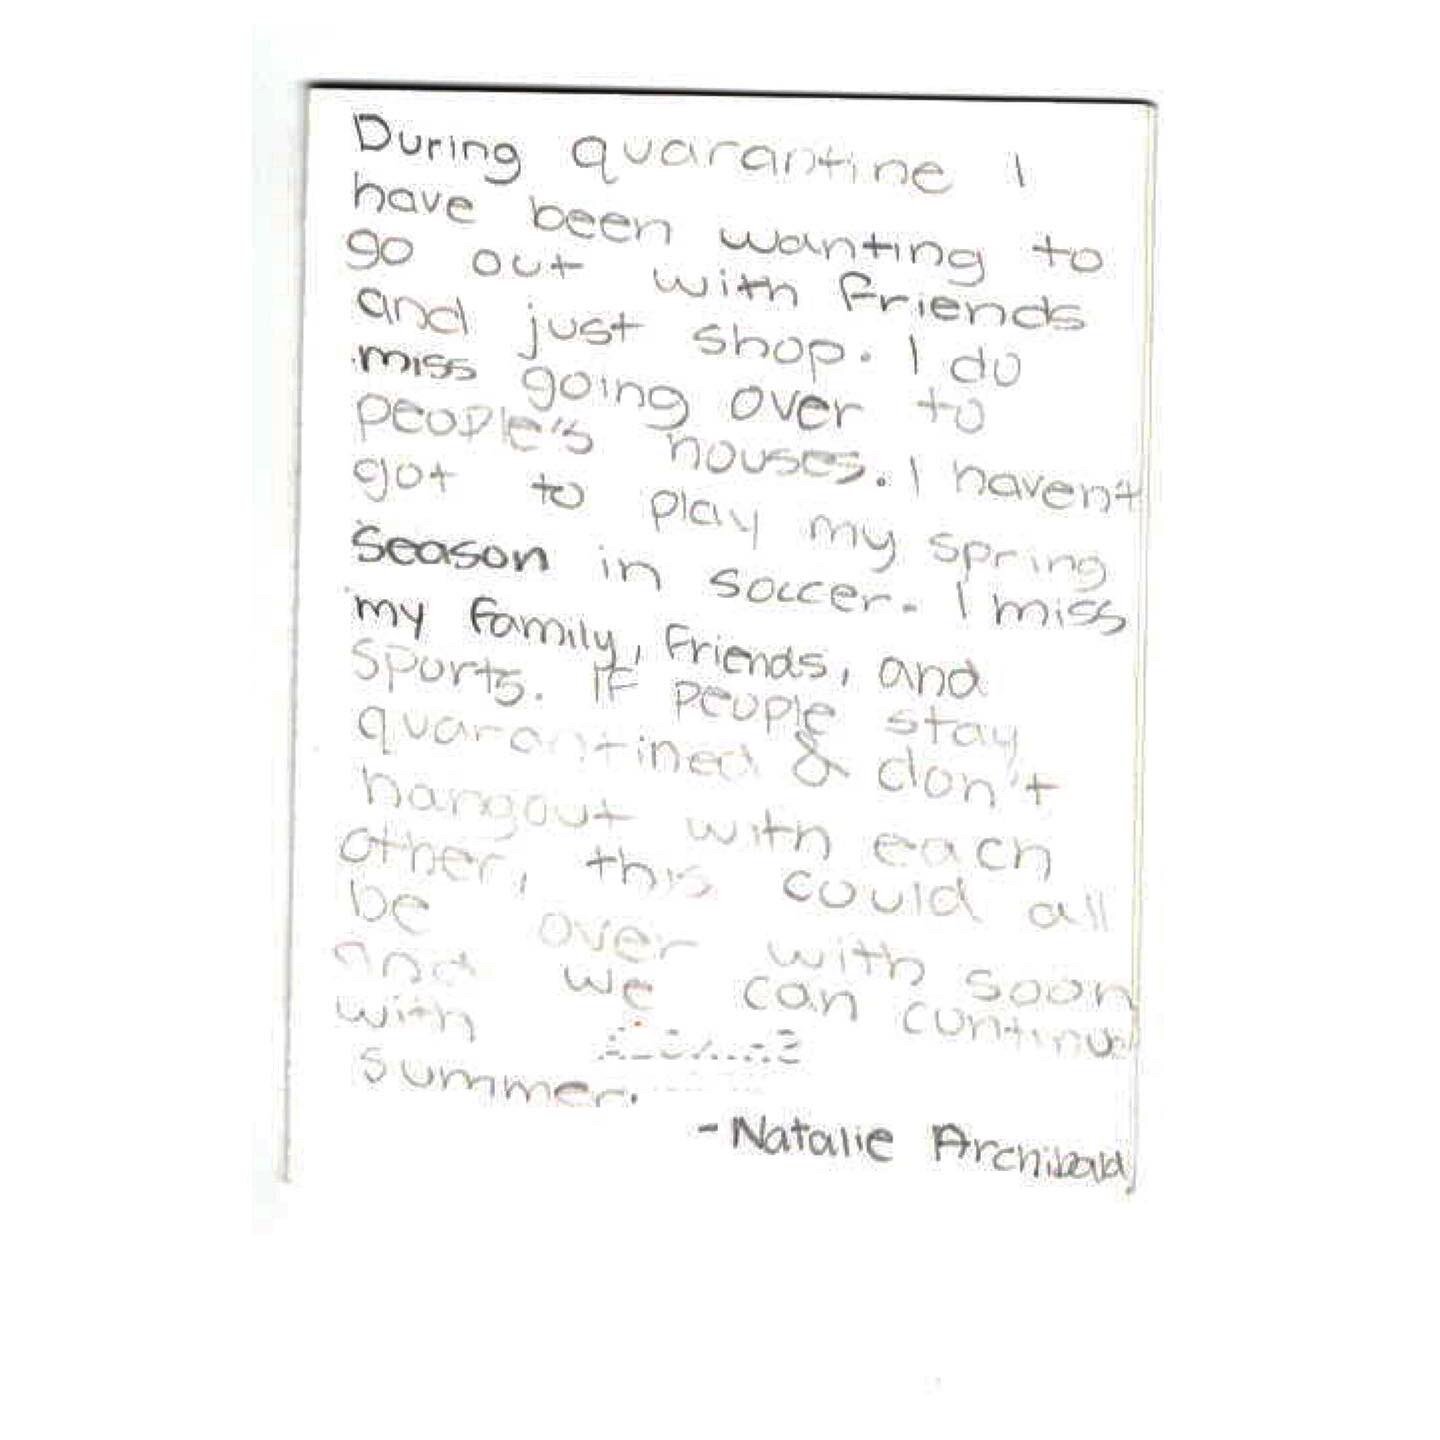 During quarantine I
have been wanting to
go out with friends
and just shop. I do
miss going over to
people's houses. I haven't
got to play my spring
season in soccer. I miss
my family, friends, and
sports. If people stay
quarantined & don't
hangout with each
other, this could all
be over with soon
and we can continue
with
summer.
-Natalie Archibald